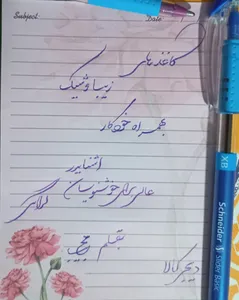 Subject
Date
کاغذهای
زیبا و شیک
بهمراه خودکار
اشنایدر
عالی برای خوشنویسان گرامی
بقلم
دیجی کالا
XB
Schneider Slider Basic